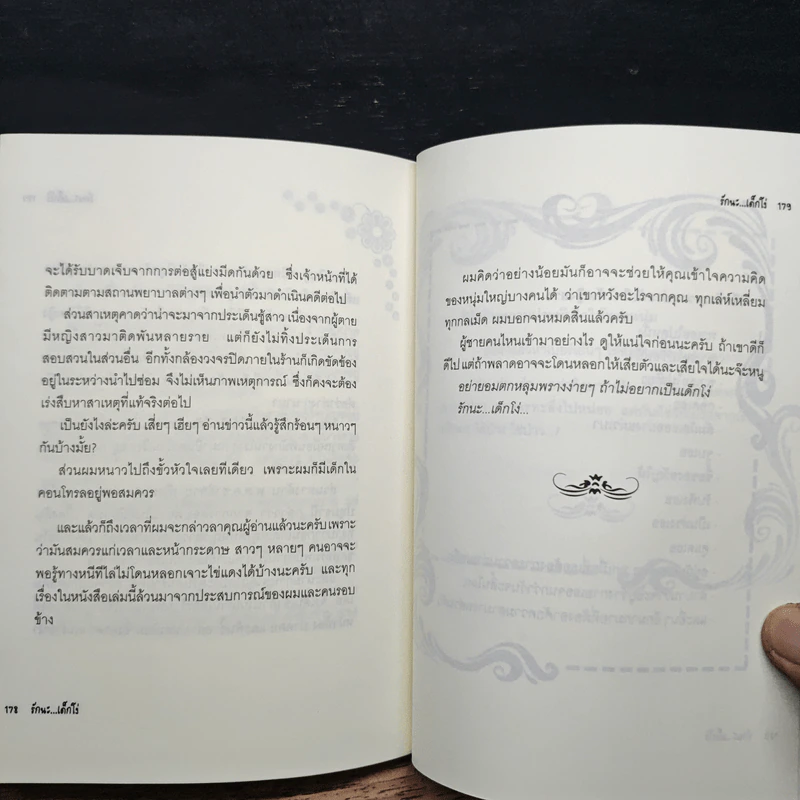 จะได้รับบาดเจ็บจากการต่อสู้แย่งมีดกันด้วย ซึ่งเจ้าหน้าที่ได้
ติดตามตามสถานพยาบาลต่างๆ เพื่อนำตัวมาดำเนินคดีต่อไป
ส่วนสาเหตุคาดว่าน่าจะมาจากประเด็นชู้สาว เนื่องจากผู้ตาย
มีหญิงสาวมาติดพันหลายราย แต่ก็ยังไม่ทิ้งประเด็นการ
สอบสวนในส่วนอื่น อีกทั้งกล้องวงจรปิดภายในร้านก็เกิดขัดข้อง
อยู่ในระหว่างนำไปซ่อม จึงไม่เห็นภาพเหตุการณ์ ซึ่งก็คงจะต้อง
เร่งสืบหาสาเหตุที่แท้จริงต่อไป
เป็นยังไงล่ะครับ เสี่ยๆ เฮียๆ อ่านข่าวนี้แล้วรู้สึกร้อนๆ หนาวๆ
กันบ้างมั้ย?
ส่วนผมหนาวไปถึงขั้วหัวใจเลยทีเดียว เพราะผมก็มีเด็กใน
คอนโทรลอยู่พอสมควร
และแล้วก็ถึงเวลาที่ผมจะกล่าวลาคุณผู้อ่านแล้วนะครับเพราะ
ว่ามันสมควรแก่เวลาและหน้ากระดาษ สาวๆ หลายๆ คนอาจจะ
พอรู้ทางหนีทีไล่ไม่โดนหลอกเจาะไข่แดงได้บ้างนะครับ และทุก
เรื่องในหนังสือเล่มนี้ล้วนมาจากประสบการณ์ของผมและคนรอบ
ข้าง
178 รักนะ...เด็กโง่
รักนะ...เด็กโง่ 179
ผมคิดว่าอย่างน้อยมันก็อาจจะช่วยให้คุณเข้าใจความคิด
ของหนุ่มใหญ่บางคนได้ ว่าเขาหวังอะไรจากคุณ ทุกเล่ห์เหลี่ยม
ทุกกลเม็ด ผมบอกจนหมดสิ้นแล้วครับ
ผู้ชายคนไหนเข้ามาอย่างไร ดูให้แน่ใจก่อนนะครับ ถ้าเขาดีก็
ดีไป แต่ถ้าพลาดอาจจะโดนหลอกให้เสียตัวและเสียใจได้นะจ๊ะหนู
อย่ายอมตกหลุมพรางง่ายๆ ถ้าไม่อยากเป็นเด็กโง่
รักนะ...เด็กโง่...